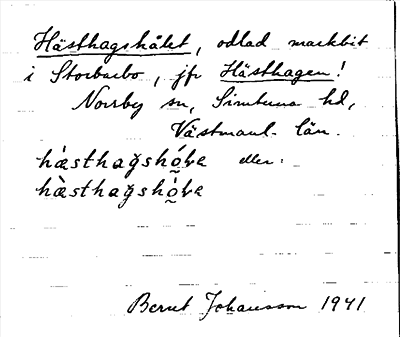 Hästhagshålet, odlad markbit
i Storbarbo, jfr Hästhagen!
Norrby sn, Simtuna hd,
Västmanl. län.
hàsthağshó̰ɫe eller:
hàsthağshò̰ɫe
Bernt Johansson 1941